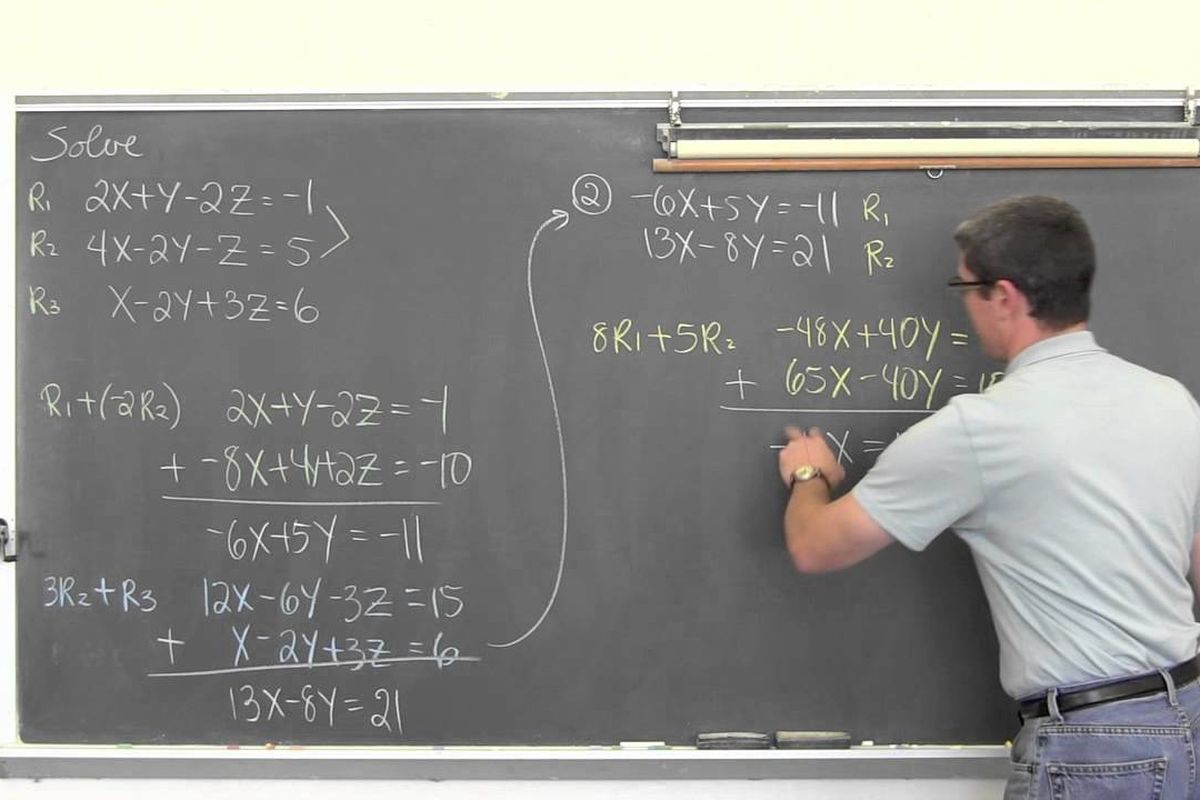 Solve
R₁ 2X+Y-2Z=-1
R₂ 4X-2Y-Z=5
R₃ X-2Y+3Z=6
R₁+(-2R₂) 2X+Y-2Z=-1
+ -8X+4Y+2Z=-10
-6X+5Y=-11
3R₂+R₃ 12X-6Y-3Z=15
+ X-2Y+3Z=6
13X-8Y=21
② -6X+5Y=-11 R₁
13X-8Y=21 R₂
8R₁+5R₂ -48X+40Y=
+ 65X-40Y=
X=